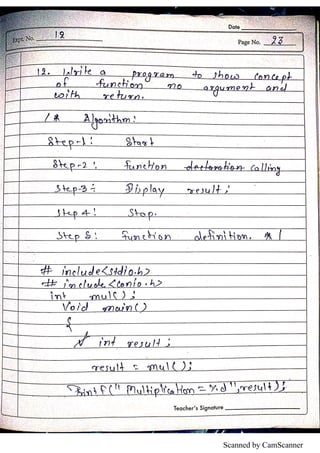 Date
Expt. No. 12
Page No. 23
12. Write a program to show concept
of function no argument and
with return.
/* Algorithm:
Step-1: Start
Step-2: function declaration calling
Step-3: Display result;
Step 4: Stop.
Step 5: function definition. */
# include<stdio.h>
# include<conio.h>
int mul();
Void main()
{
int result;
result = mul();
Printf("Multiplication = %d", result);
Teacher's Signature
Scanned by CamScanner